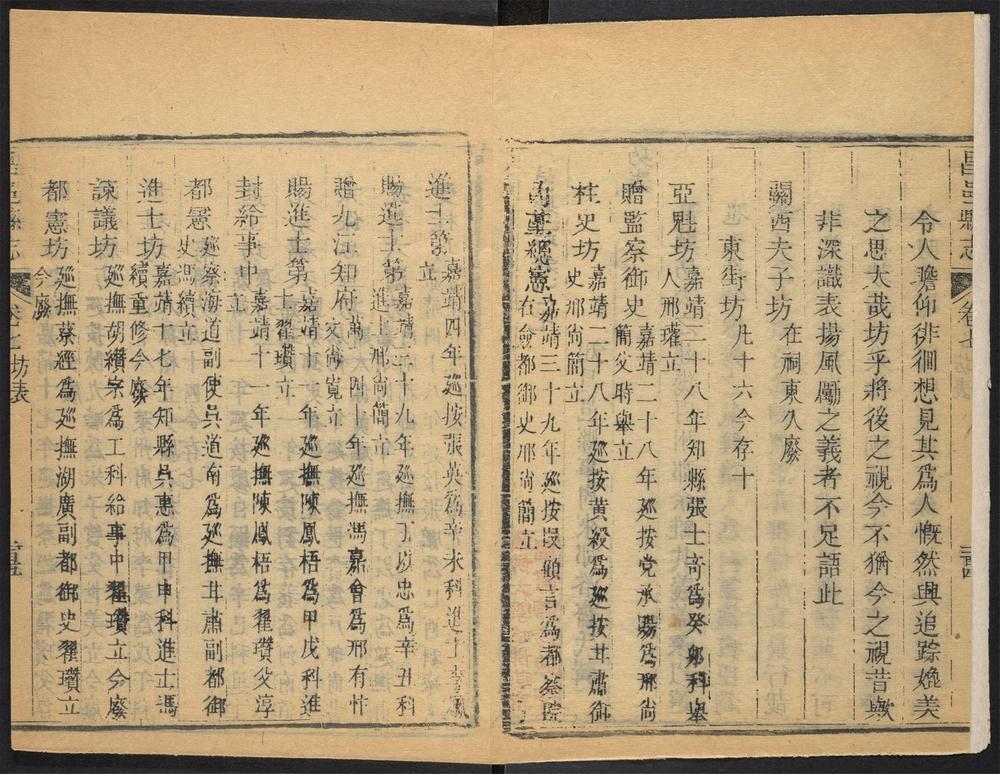 昌邑縣志
卷七
三四
令人瞻仰徘徊想見其為人慨然興追踪媲美
之思大哉坊乎將後之視今不猶今之視昔歟
非深識表揚風勵之義者不足語此
關西夫子坊 在祠東久廢
東街坊 凡十六今存十
亞魁坊 嘉靖二十八年知縣張士奇為癸卯科舉
人邢瓘立
贈監察御史 嘉靖二十八年廵按党承賜為邢尚
簡父時舉立
柱史坊 嘉靖二十八年廵按黃毅為廵按甘肅御
史邢尚簡立
嘉靖三十九年廵按段顧言為都察院
右僉都御史邢尚簡立
進士第 嘉靖四年廵按張英為辛未科進士李
立
賜進士第 嘉靖三十九年廵撫丁以忠為辛丑科
進士邢尚簡立
贈九江知府 嘉靖十年廵撫馮嘉會為邢有忤
父尚寬立
賜進士第 嘉靖十一年廵撫陳鳳梧為甲戌科進
士翟瓚立
封給事中 嘉靖十一年廵撫陳鳳梧為翟瓚父淳
立
都憲 廵察海道副使吳道南為廵撫甘肅副都御
史馮續立
進士坊 嘉靖十七年知縣吳惠為甲申科進士馮
續重修今廢
諫議坊 廵撫胡纘宗為工科給事中翟瓚立今廢
都憲坊 廵撫蔡經為廵撫湖廣副都御史翟瓚立
今廢
昌邑縣志
卷七 坊表
三五